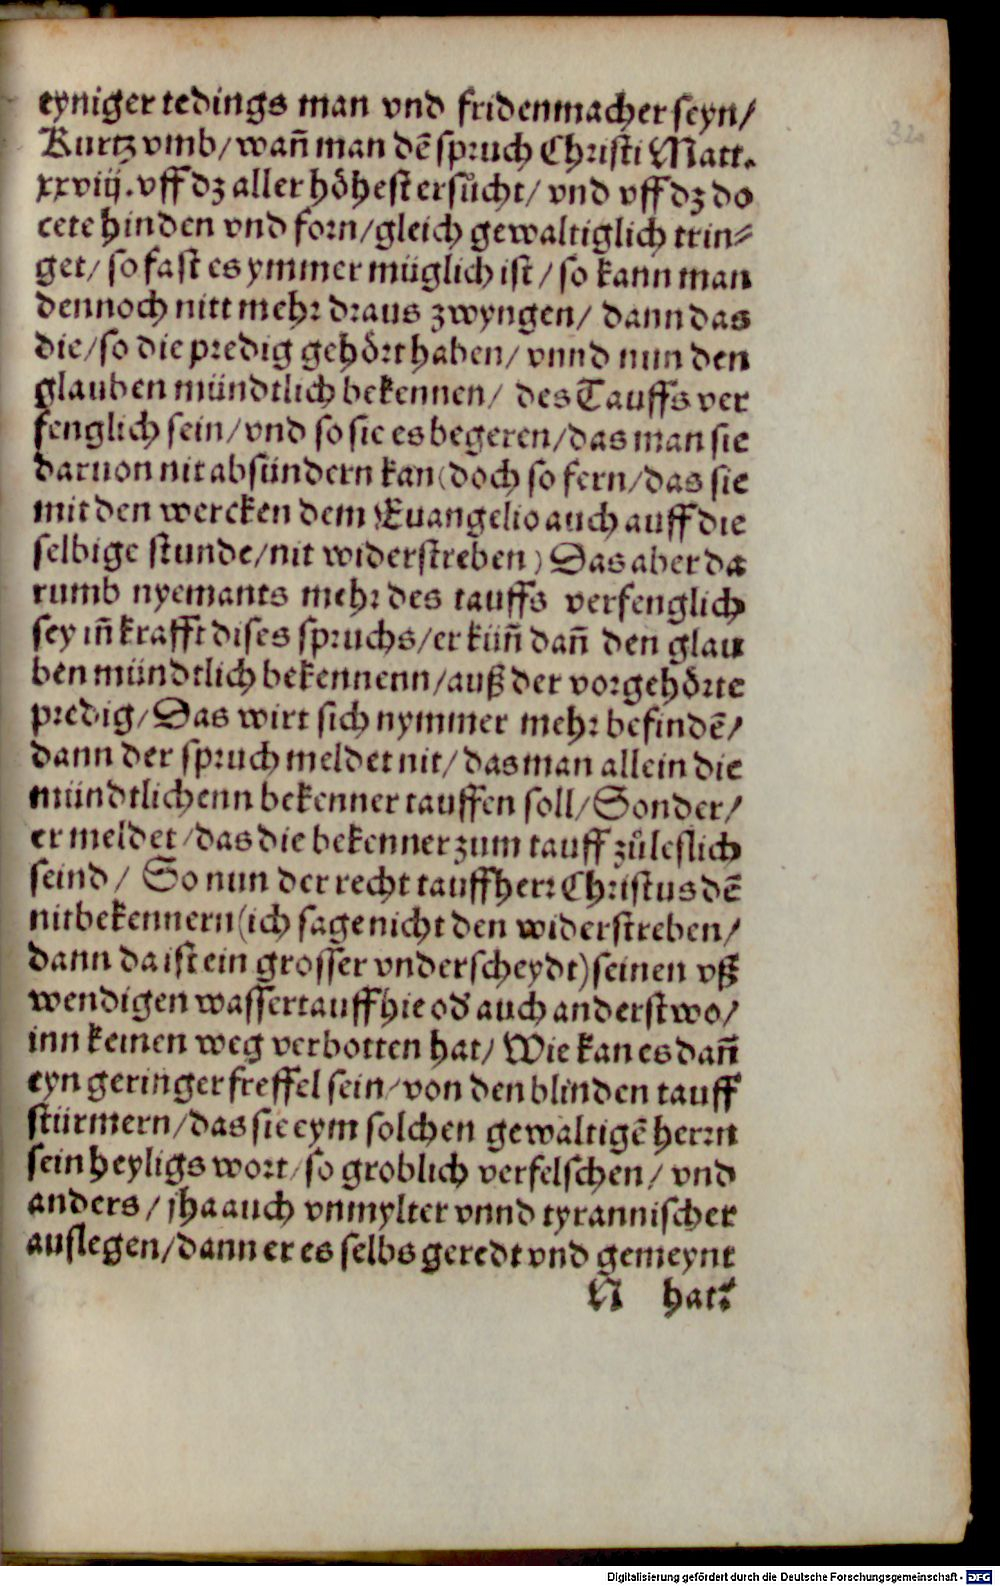 eyniger tedings man vnd fridenmacher seyn/
Kurtz vmb/ wañ man dẽ spruch Christi Matt.
xxviij. vff dz aller höhest ersůcht/ vnd vff dz do
cete hinden vnd forn/ gleich gewaltiglich trin⸗
get/ so fast es ymmer müglich ist/ so kann man
dennoch nitt mehr draus zwyngen/ dann das
die/ so die predig gehört haben/ vnnd nun den
glauben mündtlich bekennen/ des Tauffs ver
fenglich sein/ vnd so sie es begeren/ das man sie
daruon nit absündern kan (doch so fern/ das sie
mit den wercken dem Euangelio auch auff die
selbige stunde/ nit widerstreben) Das aber da
rumb nyemants mehr des tauffs verfenglich
sey iñ krafft dises spruchs/ er küñ dañ den glau
ben mündtlich bekennenn/ auß der vorgehörte
predig/ Das wirt sich nymmer mehr befindẽ/
dann der spruch meldet nit/ das man allein die
mündtlichenn bekenner tauffen soll/ Sonder/
er meldet/ das die bekenner zum tauff zůleslich
seind/ So nun der recht tauffherr Christus dẽ
nitbekennern (ich sage nicht den widerstreben/
dann da ist ein grosser vnderscheydt) seinen vß
wendigen wassertauff hie od' auch anderstwo/
inn keinen weg verbotten hat/ Wie kan es dañ
eyn geringer freffel sein/ von den blinden tauff
stürmern/ das sie eym solchen gewaltigẽ herrn
sein heyligs wort/ so groblich verfelschen/ vnd
anders/ jha auch vnmylter vnnd tyrannischer
auslegen/ dann er es selbs geredt vnd gemeynt
N hat?
32
Digitalisierung gefördert durch die Deutsche Forschungsgemeinschaft - DFG